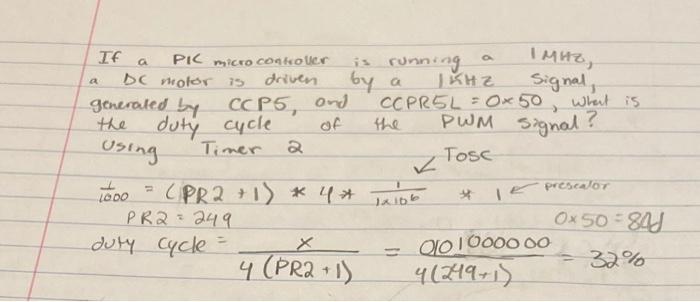 If a PIC microcontroller is running a 1MHz,
a DC motor is driven by a 1KHz signal,
generated by CCP5, and CCPR5L = 0x50, what is
the duty cycle of the PWM signal?
Using Timer 2
↙ Tosc
1/1000 = (PR2 + 1) * 4 * 1/1x10⁶ * 1 ← prescalor
PR2 = 249
0x50 = 80d
duty cycle = x / 4(PR2 + 1) = 0101000000 / 4(249+1) = 32%